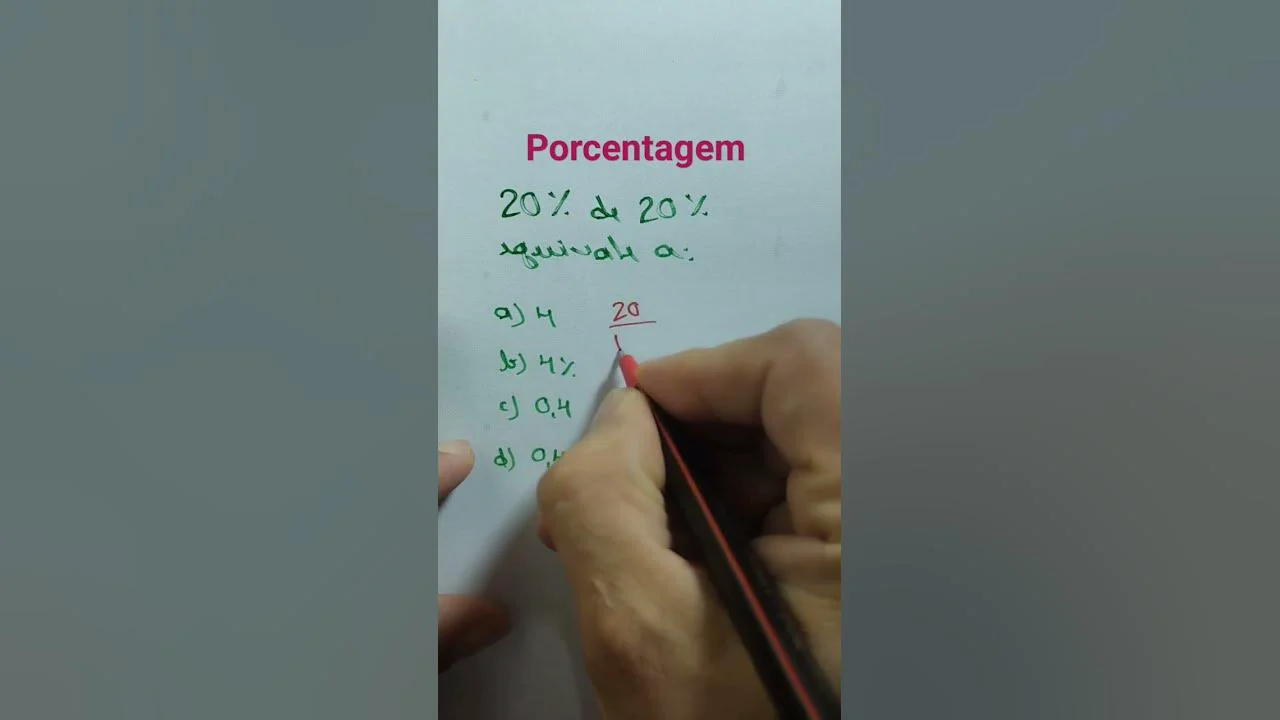 Porcentagem
20% de 20%
equivale a:
a) 4
20
b) 4%
c) 0,4
d) 0,4